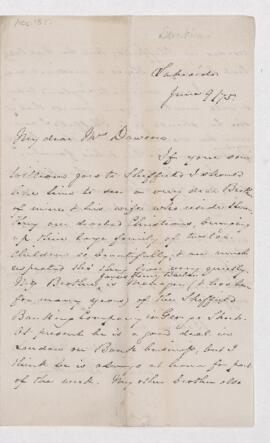 June 9/75.
My dear Mrs Dawson
If your son
William goes to Sheffield I should
like him to see a very dear Broth
of mine & his wife who reside there
They are devoted Christians, bringing
up their large family of twelve
children so beautifully, & are much
respected tho' they live very quietly.
My Brother is Manager (& has been
for many years) of the Sheffield
Banking Company in George Street.
At present he is a good deal in
London on Bank business, but I
think he is always at home for part
of the week. My other brother also